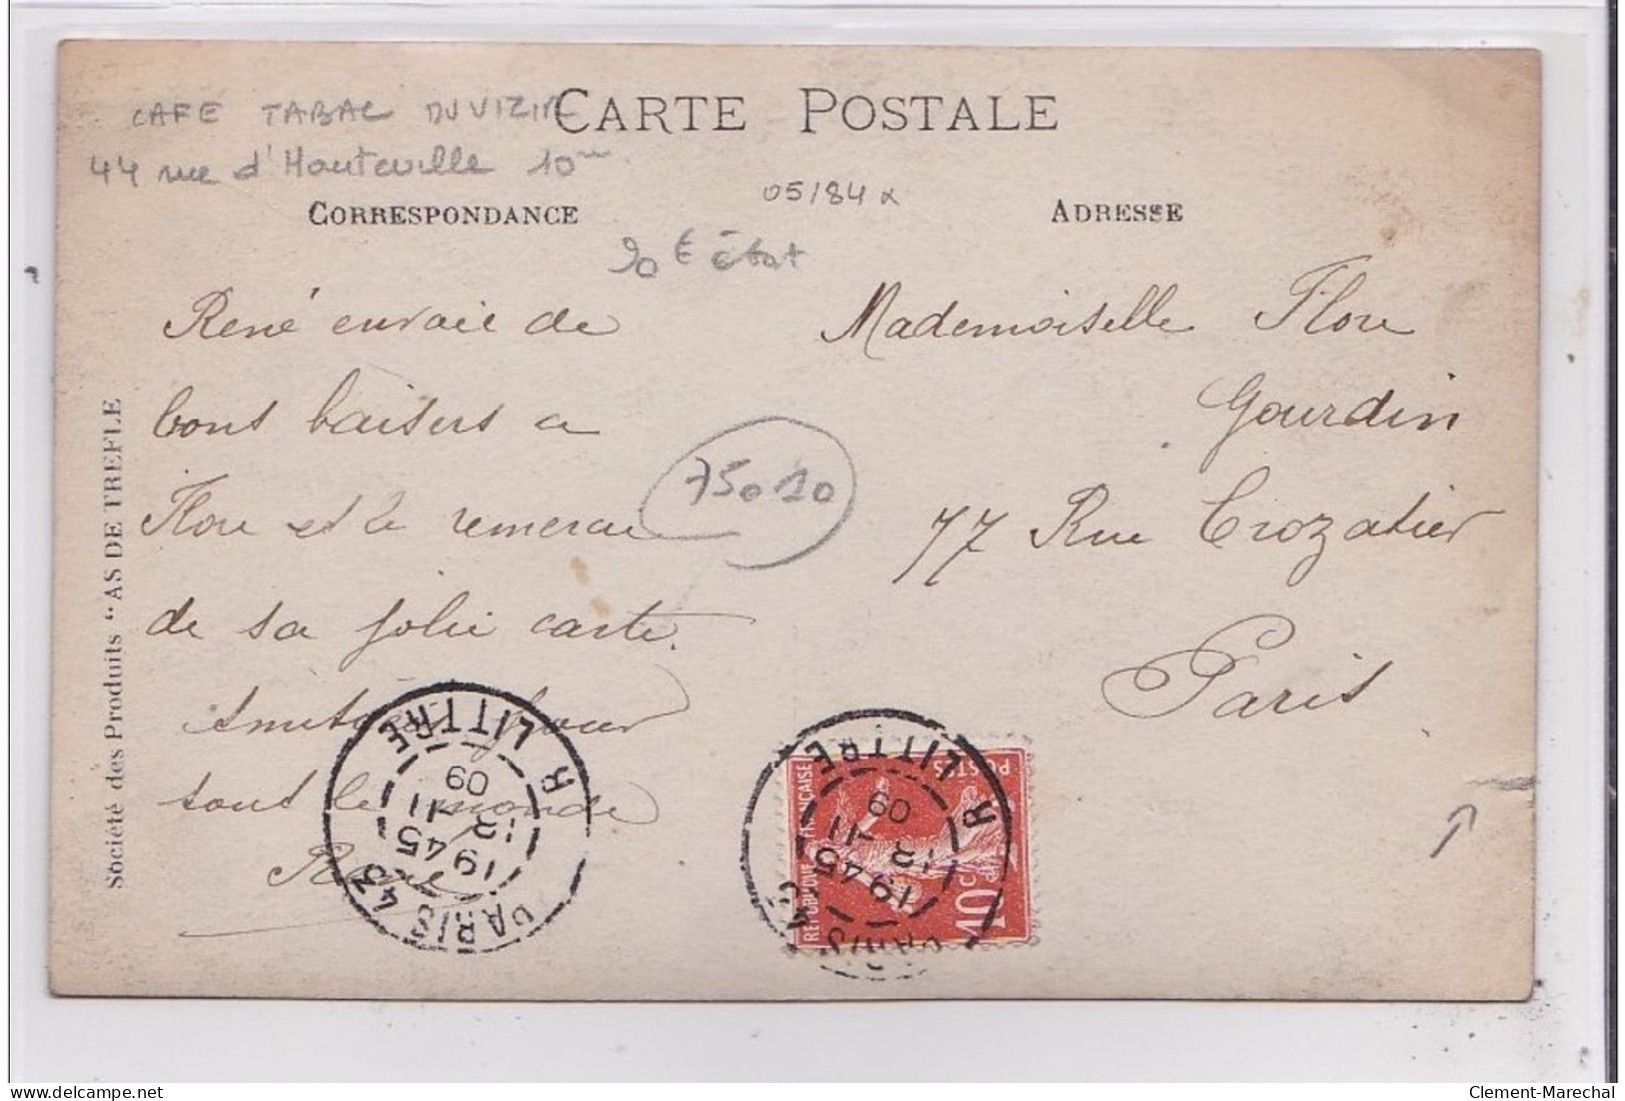 CAFE TABAC DUVIZIN
44 rue d'Hauteville 10
CARTE POSTALE
05/84 x
CORRESPONDANCE
ADRESSE
90 € état
René envoie de
bons baisers a
Flore et le remercie
de sa jolie carte.
Amitiés pour
tout le monde
René
75010
Mademoiselle Flore
Gourdin
77 Rue Crozatier
Paris
Société des Produits "AS DE TREFLE
PARIS 43 R LITTRE
1945
12 -11
09
PARIS 43 R LITTRE
1945
12 -11
09
REPUBLIQUE FRANÇAISE
POSTES
10c
delcampe.net
Clement-Marechal